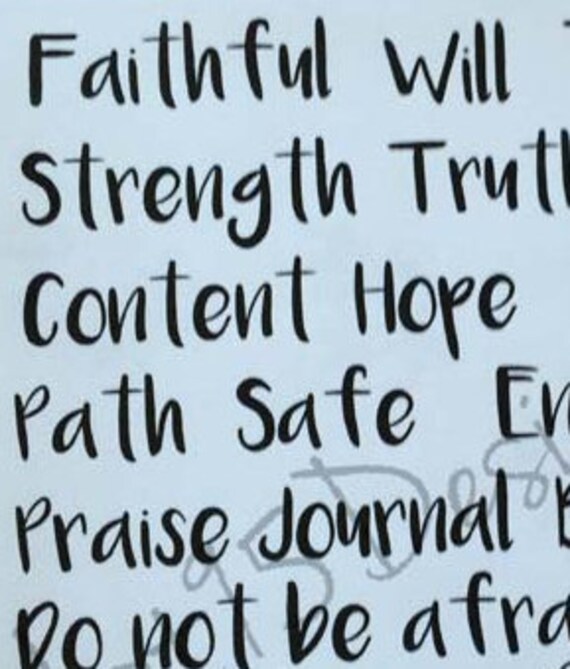 Faithful Will
Strength Trut
Content Hope
Path Safe En
Praise Journal
Do not be afra